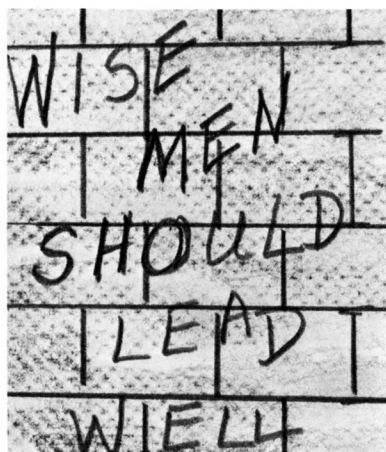 WISE
MEN
SHOULD
LEAD
WELL